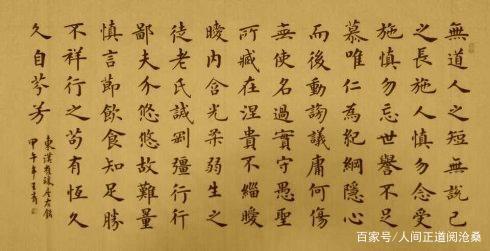 無道人之短無說己
之長施人慎勿念受
施慎勿忘世譽不足
慕唯仁為紀綱隱心
而後動謗議庸何傷
無使名過實守愚聖
所臧在涅貴不緇曖
曖內含光柔弱生之
徒老氏誡剛彊行行
鄙夫介悠悠故難量
慎言節飲食知足勝
不祥行之苟有恆久
久自芬芳
東漢崔瑗座右銘
甲午年王
百家号/人间正道阅沧桑